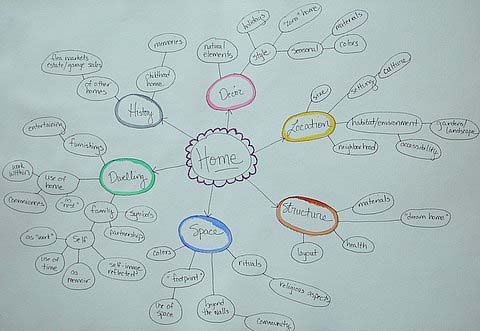 Home
Decor
natural
elements
style
holidays
"zero" home
seasonal
materials
colors
Location
size
setting
culture
habitat/environment
gardens/
landscape
accessibility
neighborhood
Structure
materials
"dream home"
health
layout
Space
colors
"footprint"
use of
space
beyond
the walls
community
rituals
religious aspects
Dwelling
furnishings
entertaining
use of
home
work
within
communities
as
family
symbols
partnership
self
as "work"
use of
time
as
memoir
self-image
reflected
History
memories
childhood
home
of other
homes
flea markets
estate/garage sales